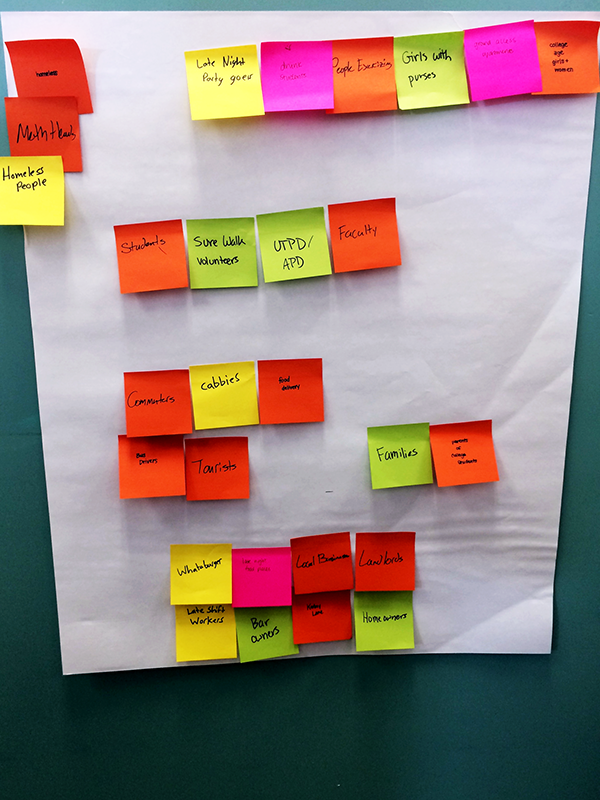 homeless
Meth Heads
Homeless
People
Late Night
Party goer
drunk
People Exercising
Girls with
purses
college
age
girls +
women
Students
Sure Walk
Volunteers
UTPD/
APD
Faculty
Commuters
cabbies
food
delivery
Bus
Drivers
Tourists
Families
parents
of
college
students
Whataburger
Local Business
Landlords
Late Shift
Workers
Bar
owners
Home owners